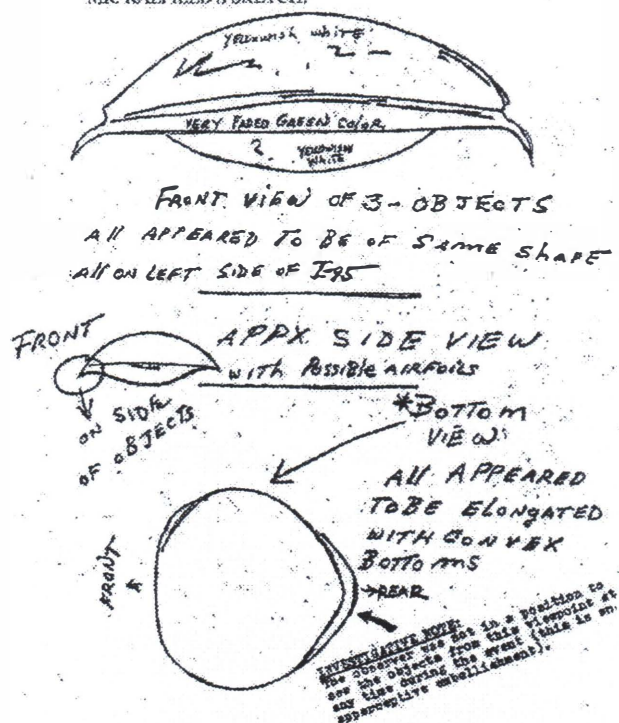 YELLOWISH WHITE
VERY FADED GREEN COLOR
? YELLOWISH
WHITE
FRONT VIEW OF 3 - OBJECTS
All APPEARED TO BE OF SAME SHAPE
All ON LEFT SIDE OF I-95
FRONT
ON SIDE
OF OBJECTS
APPX SIDE VIEW
with Possible AIRFOILS
*BOTTOM
VIEW
All APPEARED
TO BE ELONGATED
WITH CONVEX
BOTTOMS
FRONT
→REAR
INVESTIGATIVE NOTE:
The observer was not in a position to
see the objects from this viewpoint at
any time during the event (this is an
apperceptive embellishment).